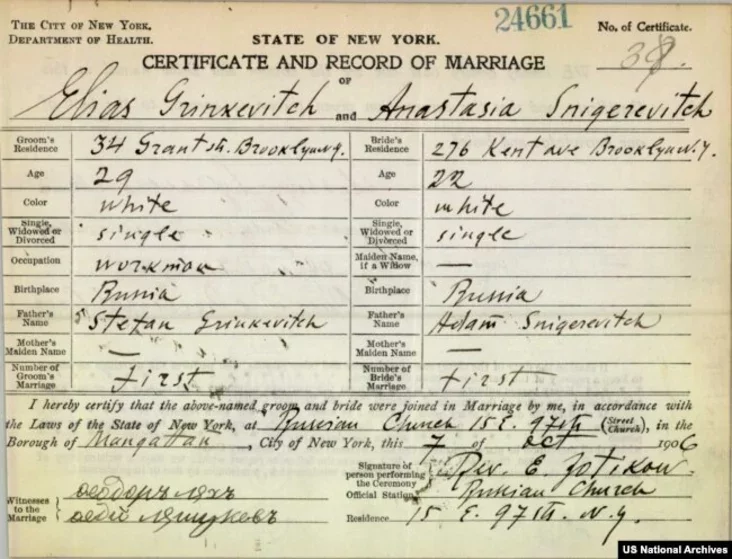 THE CITY OF NEW YORK.
DEPARTMENT OF HEALTH.
24661
No. of Certificate.
38.
STATE OF NEW YORK.
CERTIFICATE AND RECORD OF MARRIAGE
OF
Elias Grinkevitch and Anastasia Snigerevitch
Groom's Residence 34 Grant st. Brooklyn N.Y. Bride's Residence 276 Kent ave Brooklyn N.Y.
Age 29 Age 22
Color white Color white
Single, Widowed or Divorced single Single, Widowed or Divorced single
Occupation workman Maiden Name, if a Widow —
Birthplace Russia Birthplace Russia
Father's Name Stefan Grinkevitch Father's Name Adam Snigerevitch
Mother's Maiden Name — Mother's Maiden Name —
Number of Groom's Marriage first Number of Bride's Marriage first
I hereby certify that the above-named groom and bride were joined in Marriage by me, in accordance with
the Laws of the State of New York, at Russian Church 15 E. 97th (Street Church), in the
Borough of Mangattan, City of New York, this 7 of Oct 1906
Signature of person performing the Ceremony Rev. E. Zotikow.
Witnesses to the Marriage
Official Station Russian Church
Residence 15 E. 97th. N.Y.
US National Archives